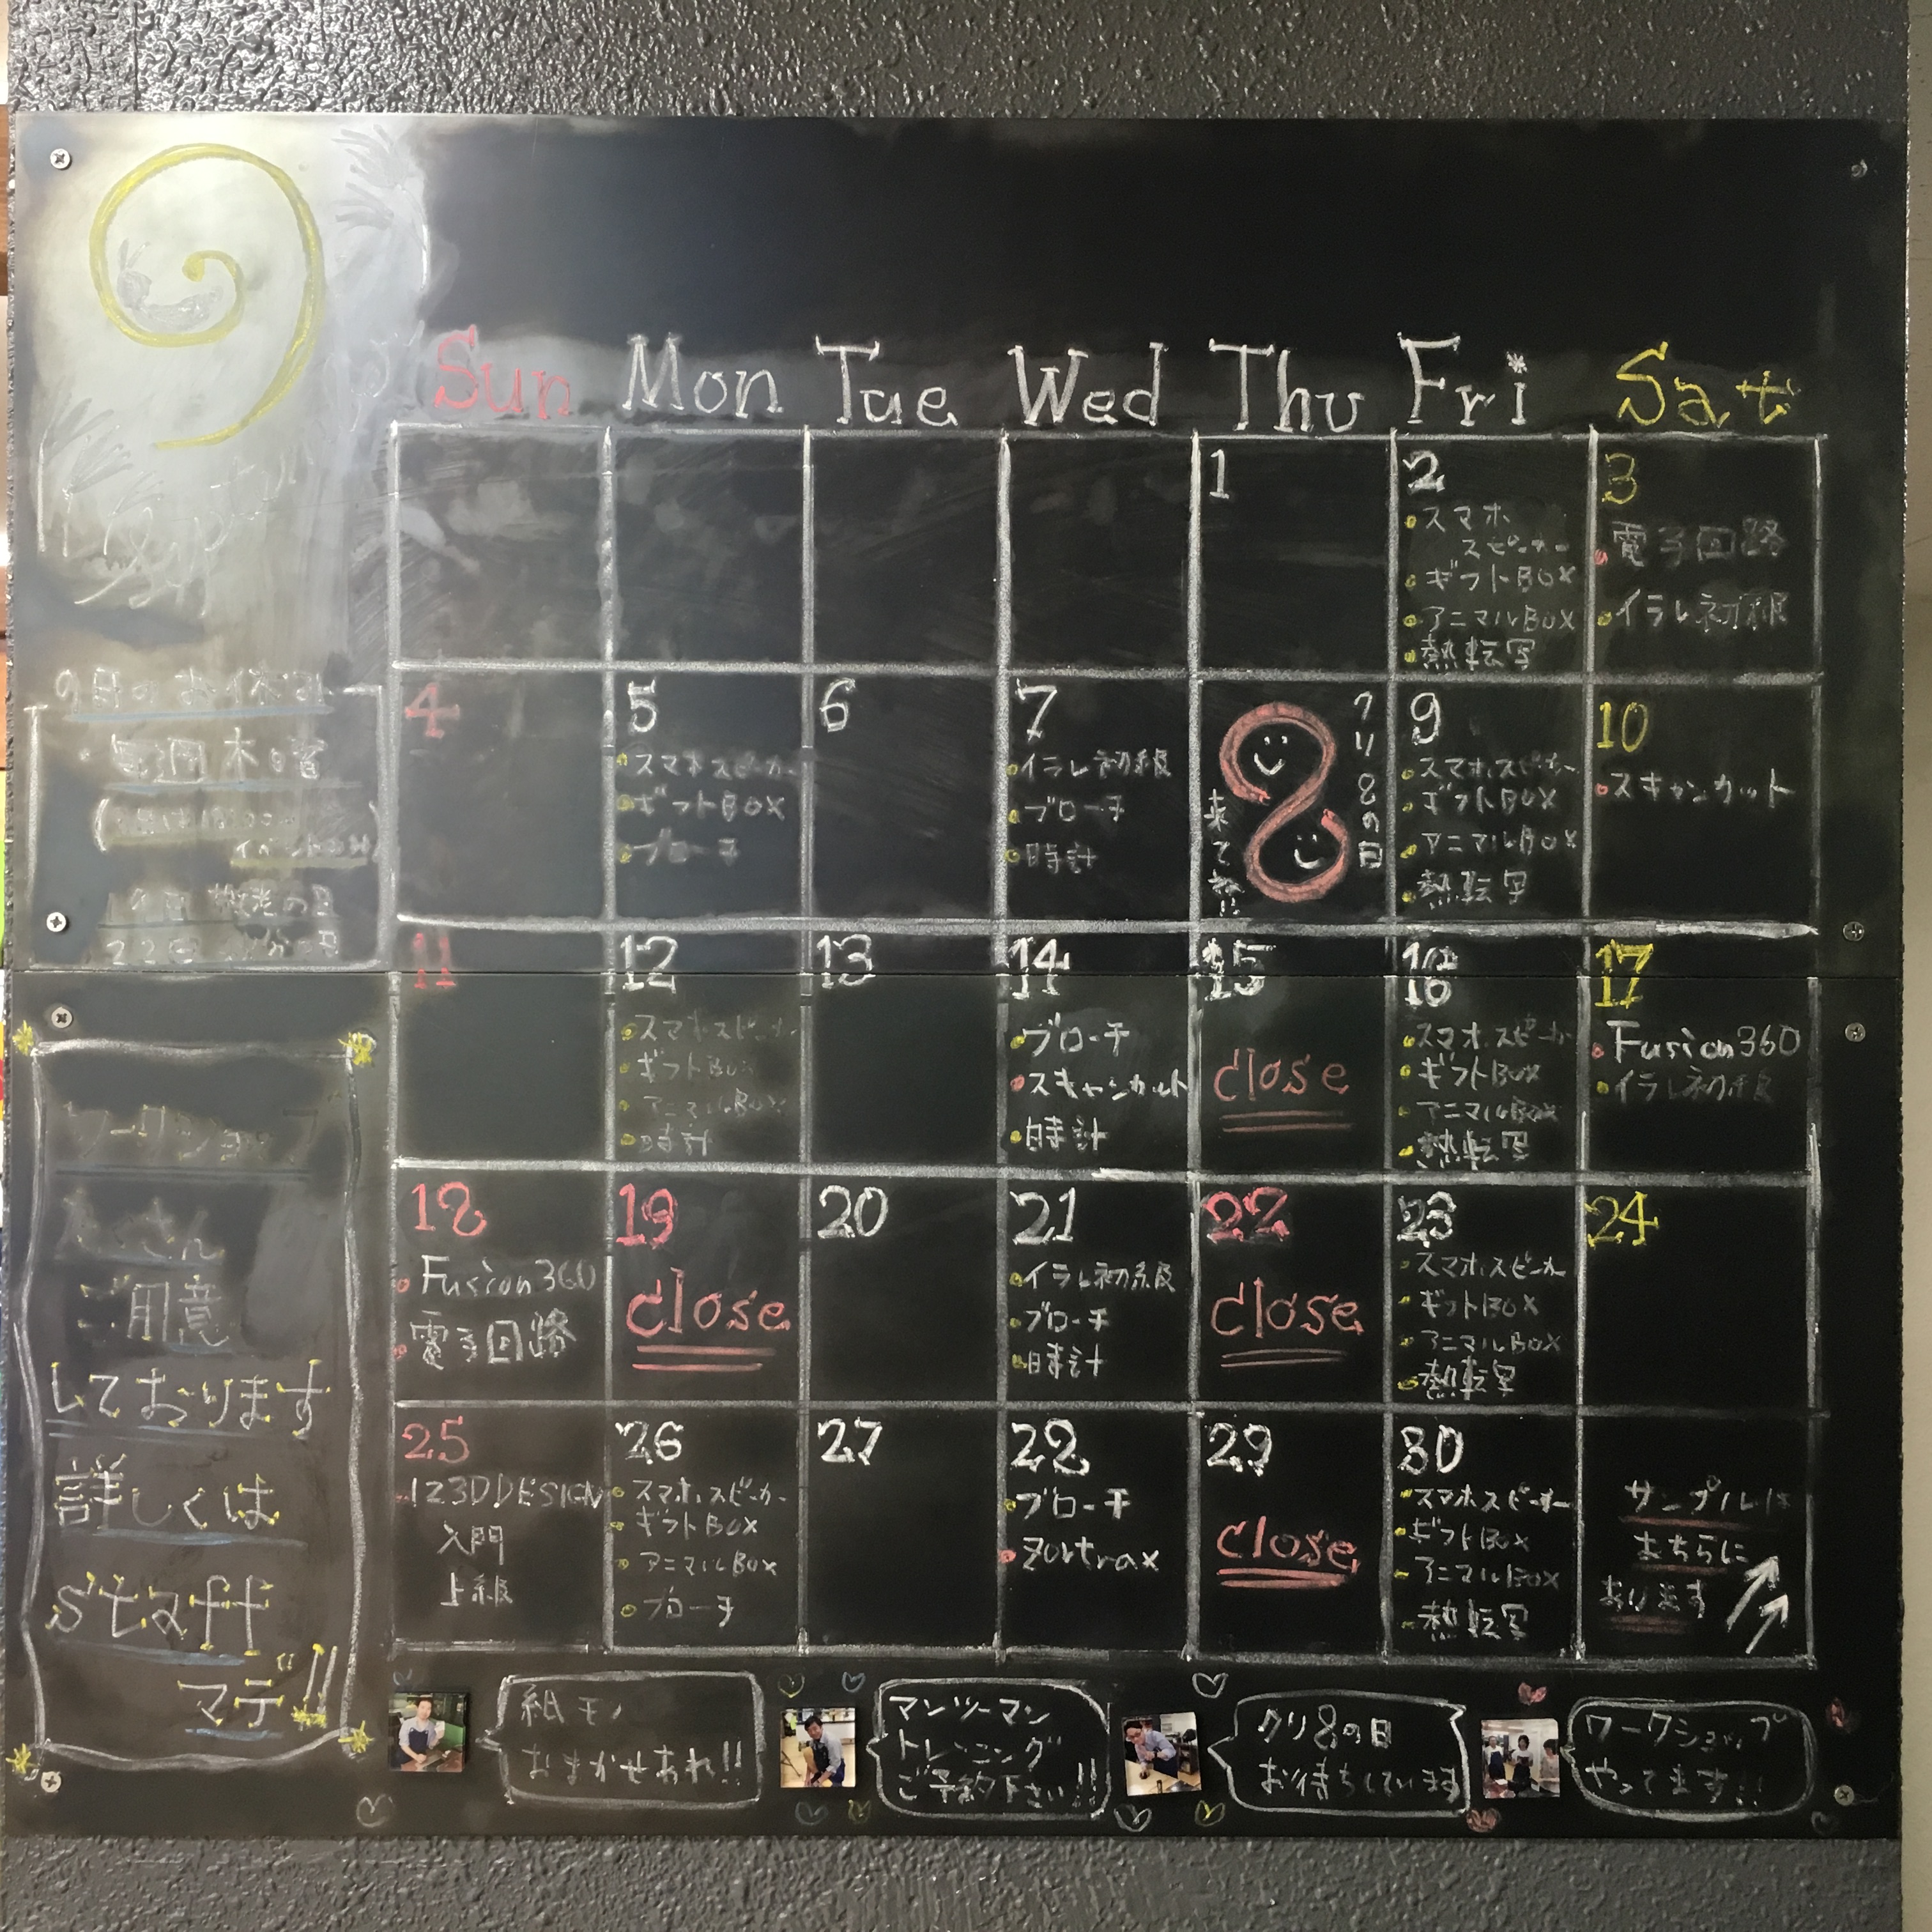 9
Sun Mon Tue Wed Thu Fri Sat
1
2
スマホ
スピーカー
ギフトBOX
アニマルBOX
熱転写
3
電子回路
イラレ初級
9月のお休み
毎週木曜
イベントのみ
4
5
スマホスピーカー
ギフトBOX
ブローチ
6
7
イラレ初級
ブローチ
時計
8
クリ8の日
来てね!!
9
スマホスピーカー
ギフトBOX
アニマルBOX
熱転写
10
スキャンカット
11
12
スマホスピーカー
ギフトBOX
アニマルBOX
時計
13
14
ブローチ
スキャンカット
時計
15
close
16
スマホスピーカー
ギフトBOX
アニマルBOX
熱転写
17
Fusion360
イラレ初級
18
Fusion360
電子回路
19
close
20
21
イラレ初級
ブローチ
時計
22
close
23
スマホスピーカー
ギフトBOX
アニマルBOX
熱転写
24
25
123D DESIGN
入門
上級
26
スマホスピーカー
ギフトBOX
アニマルBOX
ブローチ
27
28
ブローチ
Zortrax
29
close
30
スマホスピーカー
ギフトBOX
アニマルBOX
熱転写
サンプルは
こちらに
あります
ワークショップ
たくさん
ご用意
しております
詳しくは
staff
マデ!!
紙モノ
おまかせあれ!!
マンツーマン
トレーニング
ご予約下さい!!
クリ8の日
お待ちしています
ワークショップ
やってます!!